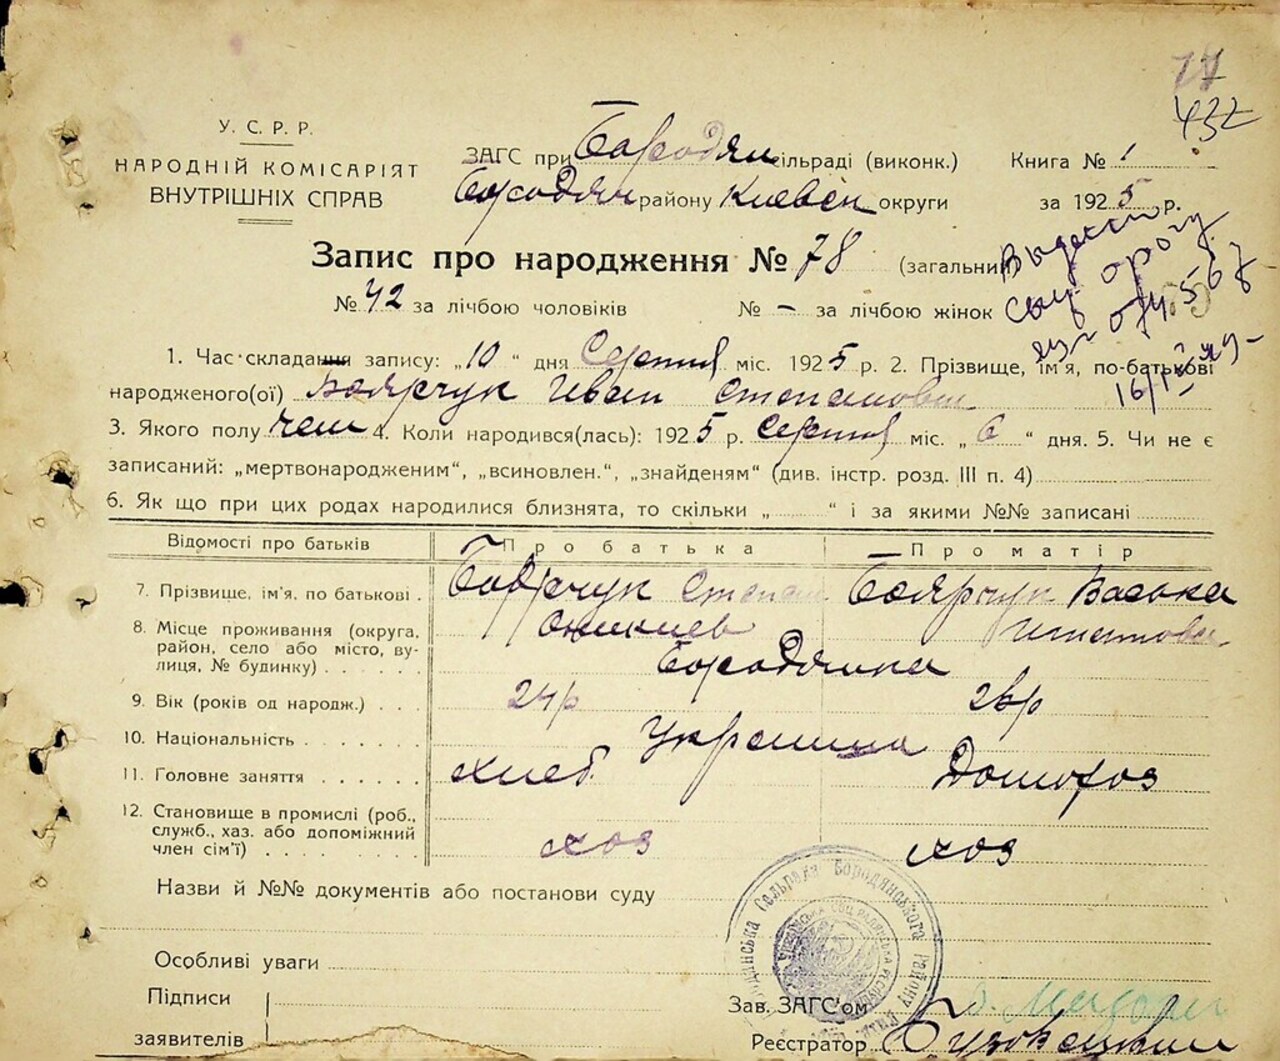 77
432
У. С. Р. Р.
НАРОДНІЙ КОМІСАРІЯТ
ВНУТРІШНІХ СПРАВ
ЗАГС при Бородян сільраді (виконк.) Книга № 1
Бородян району Киевск округи за 1925 р.
Запис про народження № 78 (загальний)
№ 42 за лічбою чоловіків № – за лічбою жінок
1. Час складання запису: „10“ дня Серпня міс. 1925 р. 2. Прізвище, ім'я, по-батькові
народженого(ої) Боярчук Иван Степанович
16/IX
3. Якого полу чел 4. Коли народився(лась): 1925 р. Серпня міс. „6“ дня. 5. Чи не є
записаний: „мертвонародженим“, „всиновлен.“, „знайденям“ (див. інстр. розд. III п. 4)
6. Як що при цих родах народилися близнята, то скільки „ “ і за якими №№ записані
Відомості про батьків Про батька Про матір
7. Прізвище, ім'я, по батькові . Боярчук Степан Боярчук
8. Місце проживання (округа,
район, село або місто, ву-
лиця, № будинку) . . . . Бородянка
9. Вік (років од народж.) . . . 24р 26р
10. Національність . . . . . . . Украинцы
11. Головне заняття . . . . . . хлеб. Домохоз
12. Становище в промислі (роб.,
служб., хаз. або допоміжний
член сім'ї) . . . . . . . . . хоз хоз
Назви й №№ документів або постанови суду
Особливі уваги
Підписи
заявителів
Зав. ЗАГС'ом
Реєстратор
Сельрада Бородянського Району